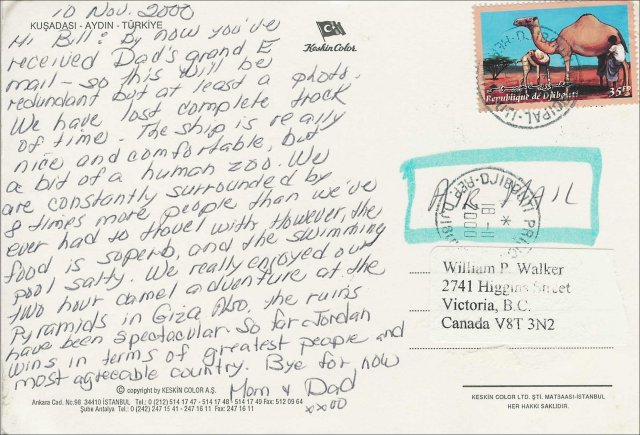 10 Nov. 2000
KUŞADASI - AYDIN - TÜRKİYE
Hi Bill: By now you've
received Dad's grand E
mail - so this will be
redundant but at least a photo.
We have lost complete track
of time. The ship is really
nice and comfortable, but
a bit of a human zoo. We
are constantly surrounded by
8 times more people than we've
ever had to travel with. However, the
food is superb, and the swimming
pool salty. We really enjoyed our
two hour camel adventure at the
Pyramids in Giza. Also, the ruins
have been spectacular. So far Jordan
wins in terms of greatest people and
most agreeable country. Bye for now
Mom & Dad
xxoo
© copyright by KESKİN COLOR A.Ş.
Ankara Cad. No.98 34410 İSTANBUL Tel: 0 (212) 514 17 47 - 514 17 48 - 514 17 49 Fax: 512 09 64
Şube Antalya Tel: 0 (242) 247 15 41 - 247 16 11 Fax: 247 16 11
Keskin Color
Republique de Djibouti
35F
AIR MAIL
DJIBOUTI
REP. DJIB
18-11
2000
William P. Walker
2741 Higgins Street
Victoria, B.C.
Canada V8T 3N2
KESKİN COLOR LTD. ŞTİ. MATBAASI-İSTANBUL
HER HAKKI SAKLIDIR.